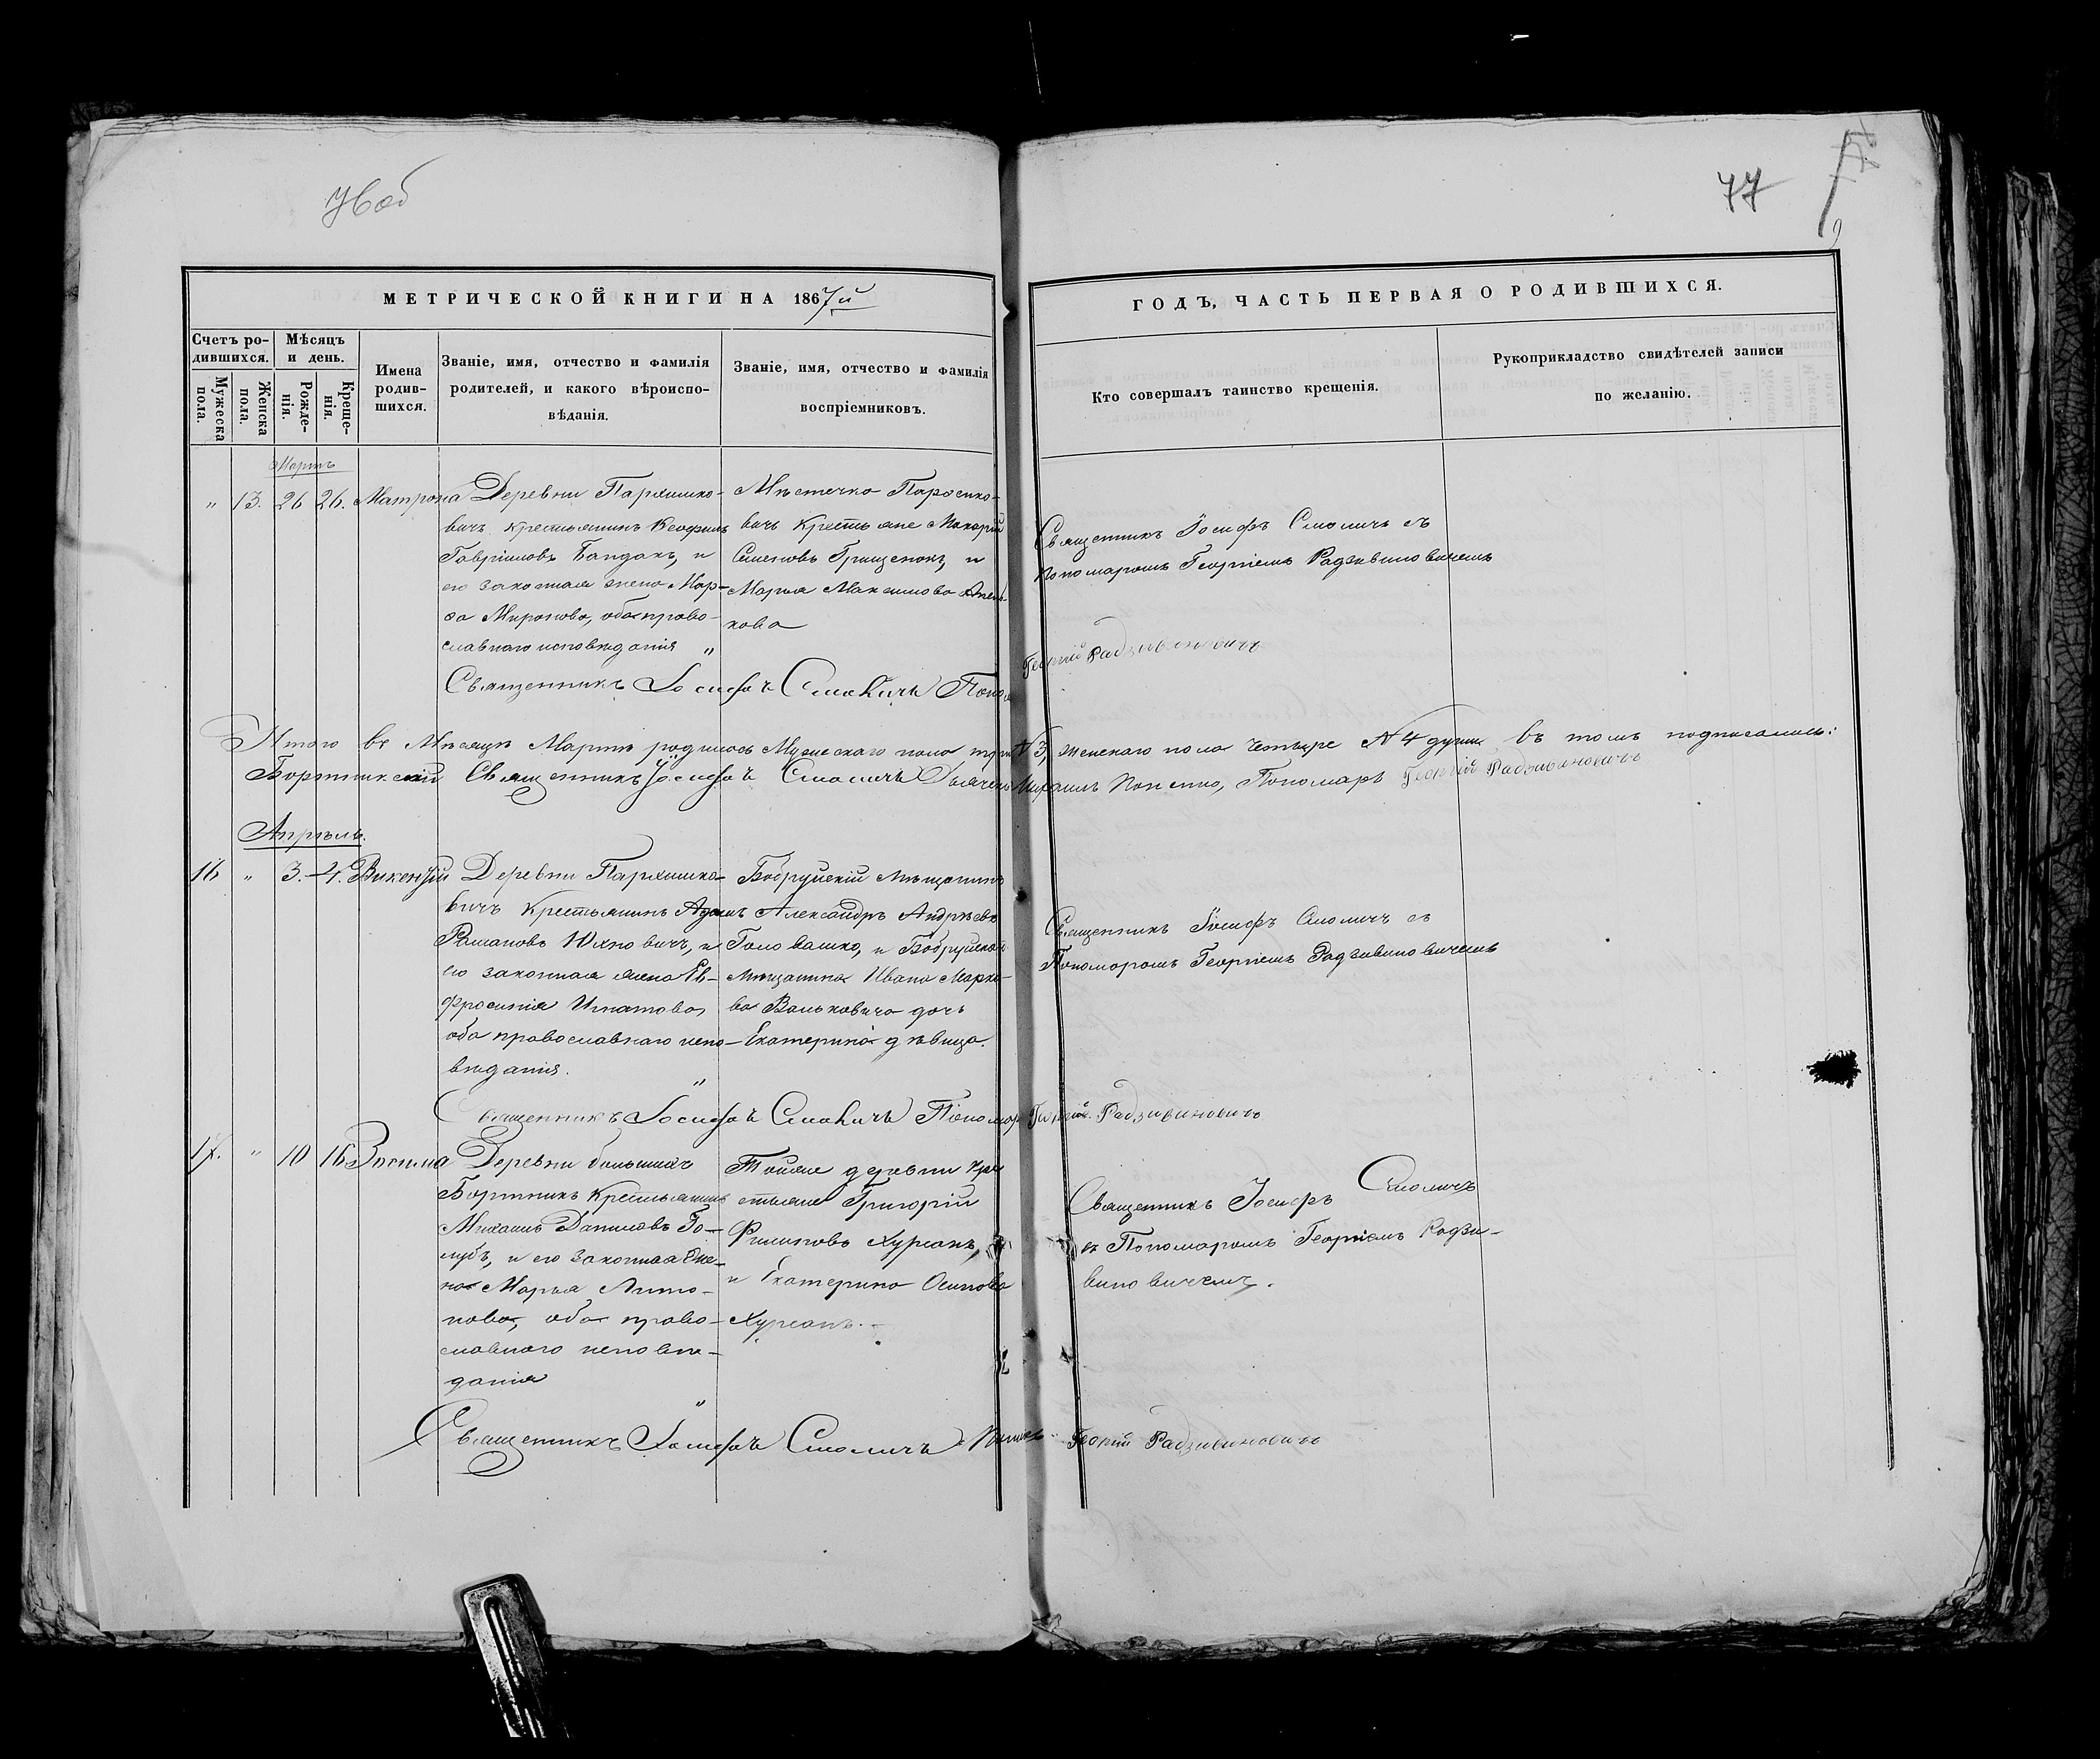 77
МЕТРИЧЕСКОЙ КНИГИ НА 1867й
ГОДЪ, ЧАСТЬ ПЕРВАЯ О РОДИВШИХСЯ.
Счетъ ро-
дившихся.
Мужеска
пола.
Женска
пола.
Мѣсяцъ
и день.
Рожде-
нія.
Креще-
нія.
Имена
родив-
шихся.
Званіе, имя, отчество и фамилія
родителей, и какого вѣроиспо-
вѣданія.
Званіе, имя, отчество и фамилія
воспріемниковъ.
Кто совершалъ таинство крещенія.
Рукоприкладство свидѣтелей записи
по желанію.
Мартъ
" 13. 26 26. Матрона
Деревни Пархимко-
вичъ крестьянинъ
Гавріиловъ Бандакъ, и
его законная жена Мар-
фа Миронова, оба право-
славнаго исповѣданія "
Мѣстечка
вичь крестьяне Макарій
Семеновъ Грищенокъ, и
Марья Максимова
кова
Священникъ Іосифъ Смоличъ съ
пономаромъ Георгіемъ Радзивиновичемъ
Священникъ Іосифъ Смоличъ Поном
Георгій Радзивиновичъ
Итого въ Мѣсяцѣ Мартѣ родилось Мужескаго пола три №3, женскаго пола четыре №4 души въ томъ подписались:
Бортникскій Священникъ Іосифъ Смоличъ Дьячекъ Михаилъ Пономарь Георгій Радзивиновичъ
Апрѣль.
16 " 3. 4. Викентій
Деревни Пархимко-
вичъ крестьянинъ Адамъ
Романовъ Юхновичъ, и
его законная жена Ев-
фросинія Игнатова
оба православнаго испо-
вѣданія. "
Бобруйскій мѣщанинъ
Александръ Андрѣевъ
Головашко, и Бобруйскаго
мѣщанина Ивана Марко-
ва Ваньковича дочь
Екатерина дѣвица.
Священникъ Іосифъ Смоличъ съ
Пономоромъ Георгіемъ Радзивиновичемъ
Священникъ Іосифъ Смоличъ Пономарь Георгій Радзивиновичъ
17. " 10 16 Зосима
Деревни большихъ
Бортникъ крестьянинъ
Михаилъ Даниловъ Го-
лубъ, и его законная же-
на Марья Анто-
нова, оба право-
славнаго исповѣ-
данія "
Тойже деревни кре
стьяне Григорій
Филиповъ Хурсанъ,
и Екатерина Осипова
Хурсанъ.
Священникъ Іосифъ Смоличъ
съ Пономаромъ Георгіемъ Радзи-
виновичемъ.
Священникъ Іосифъ Смоличъ
Георгій Радзивиновичъ